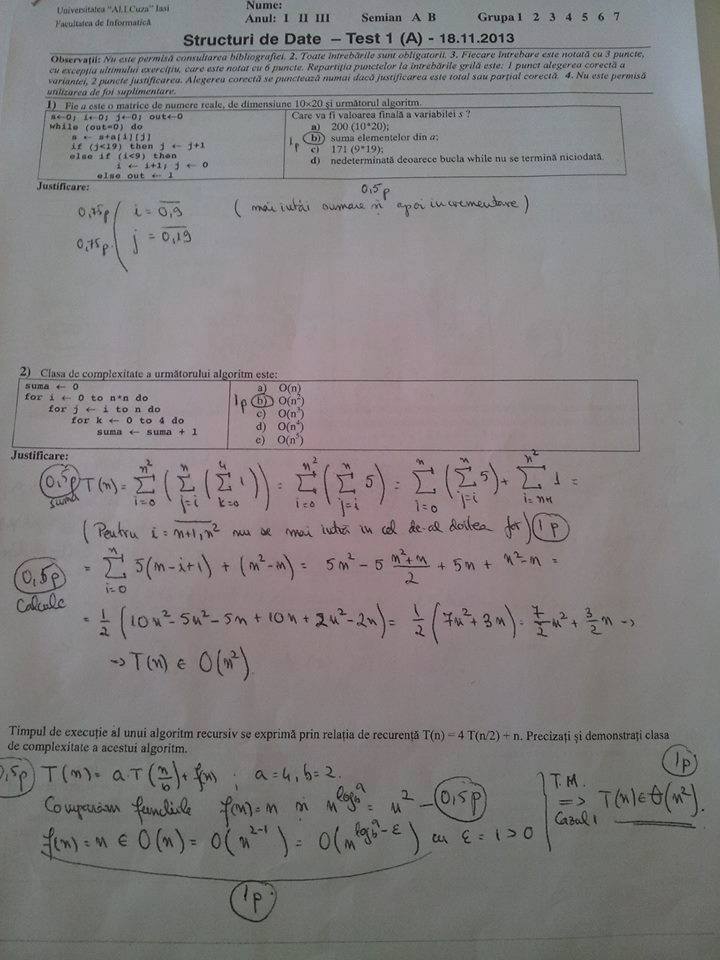 Universitatea "Al.I.Cuza" Iasi
Facultatea de Informatică
Nume:
Anul: I II III Semian A B Grupa 1 2 3 4 5 6 7
Structuri de Date – Test 1 (A) - 18.11.2013
Observații: Nu este permisă consultarea bibliografiei. 2. Toate întrebările sunt obligatorii. 3. Fiecare întrebare este notată cu 3 puncte,
cu excepția ultimului exercițiu, care este notat cu 6 puncte. Repartiția punctelor la întrebările grilă este: 1 punct alegerea corectă a
variantei, 2 puncte justificarea. Alegerea corectă se punctează numai dacă justificarea este total sau parțial corectă. 4. Nu este permisă
utilizarea de foi suplimentare.
1) Fie a este o matrice de numere reale, de dimensiune 10×20 și următorul algoritm.
s←0; i←0; j←0; out←0
while (out=0) do
s ← s+a[i][j]
if (j<19) then j ← j+1
else if (i<9) then
i ← i+1; j ← 0
else out ← 1
Care va fi valoarea finală a variabilei s ?
a) 200 (10*20);
1p b) suma elementelor din a;
c) 171 (9*19);
d) nedeterminată deoarece bucla while nu se termină niciodată.
Justificare:
0,5p
0,75p i = 0,9 (mai intâi sumare si apoi incrementare)
0,75p j = 0,19
2) Clasa de complexitate a următorului algoritm este:
suma ← 0
for i ← 0 to n*n do
for j ← i to n do
for k ← 0 to 4 do
suma ← suma + 1
a) O(n)
1p b) O(n²)
c) O(n³)
d) O(n⁴)
e) O(n⁵)
Justificare:
0,5p suma T(n) = Σ_{i=0}^{n²} (Σ_{j=i}^{n} (Σ_{k=0}^{4} 1)) = Σ_{i=0}^{n²} (Σ_{j=i}^{n} 5) = Σ_{i=0}^{n} (Σ_{j=i}^{n} 5) + Σ_{i=n+1}^{n²} 1 =
(Pentru i = n+1, n² nu se mai intră in cel de-al doilea for) 1p
0,5p calcule = Σ_{i=0}^{n} 5(n-i+1) + (n²-n) = 5n² - 5 (n²+n)/2 + 5n + n²-n =
= 1/2 (10n² - 5n² - 5n + 10n + 2n² - 2n) = 1/2 (7n² + 3n) = 7/2 n² + 3/2 n →
→ T(n) ∈ O(n²).
Timpul de execuție al unui algoritm recursiv se exprimă prin relația de recurență T(n) = 4 T(n/2) + n. Precizați și demonstrați clasa
de complexitate a acestui algoritm.
0,5p T(n) = a·T(n/b) + f(n) ; a = 4, b = 2.
Comparăm funcțiile f(n) = n si n^{log_b a} = n² – 0,5p
f(n) = n ∈ O(n) = O(n^{2-1}) = O(n^{log_b a - ε}) cu ε = 1 > 0
1p
T.M. => Cazul 1 T(n) ∈ Θ(n²).
1p